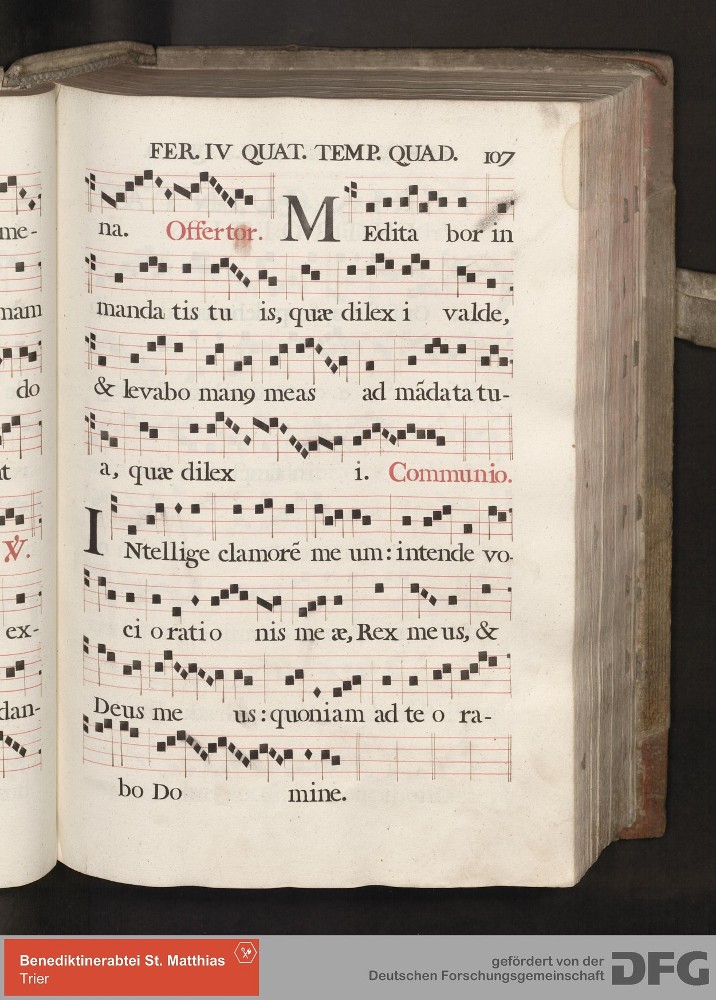 FER. IV QUAT. TEMP. QUAD. 107
me-
na. Offertor. MEdita bor in
mam
manda tis tu is, quæ dilex i valde,
do
& levabo man9 meas ad mãdata tu-
a, quæ dilex i. Communio.
℣.
INtellige clamorẽ me um: intende vo-
ex-
ci oratio nis me æ, Rex meus, &
dan-
Deus me us: quoniam ad te o ra-
bo Do mine.
Benediktinerabtei St. Matthias
Trier
gefördert von der
Deutschen Forschungsgemeinschaft DFG